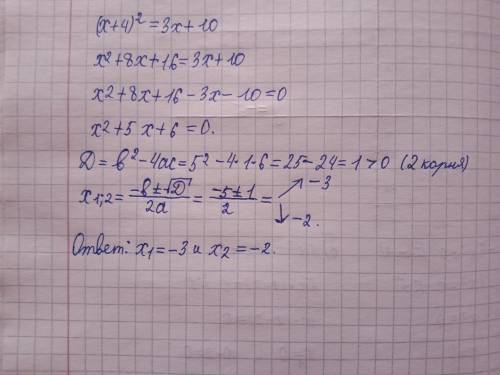 (x+4)² = 3x+10
x²+8x+16 = 3x+10
x2+8x+16-3x-10=0
x²+5x+6=0.
D = b²-4ac = 5²-4·1·6 = 25-24 = 1 > 0 (2 корня)
x1;2 = (-b±√D)/2a = (-5±1)/2 = ↗ -3 ↓ -2.
Ответ: x₁ = -3 и x₂ = -2.